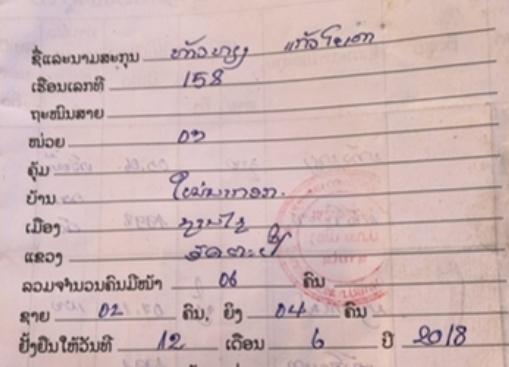 ຊື່ແລະນາມສະກຸນ ທ້າວ ແກ້ວ
ເຮືອນເລກທີ 158
ຖະໜົນສາຍ
ໜ່ວຍ 07
ຄຸ້ມ
ບ້ານ ໃໝ່
ເມືອງ ຊານໄຊ
ແຂວງ ອັດຕະປື
ລວມຈຳນວນຄົນມີໜ້າ 06 ຄົນ
ຊາຍ 02 ຄົນ, ຍິງ 04 ຄົນ
ຢັ້ງຢືນໃຫ້ວັນທີ 12 ເດືອນ 6 ປີ 2018